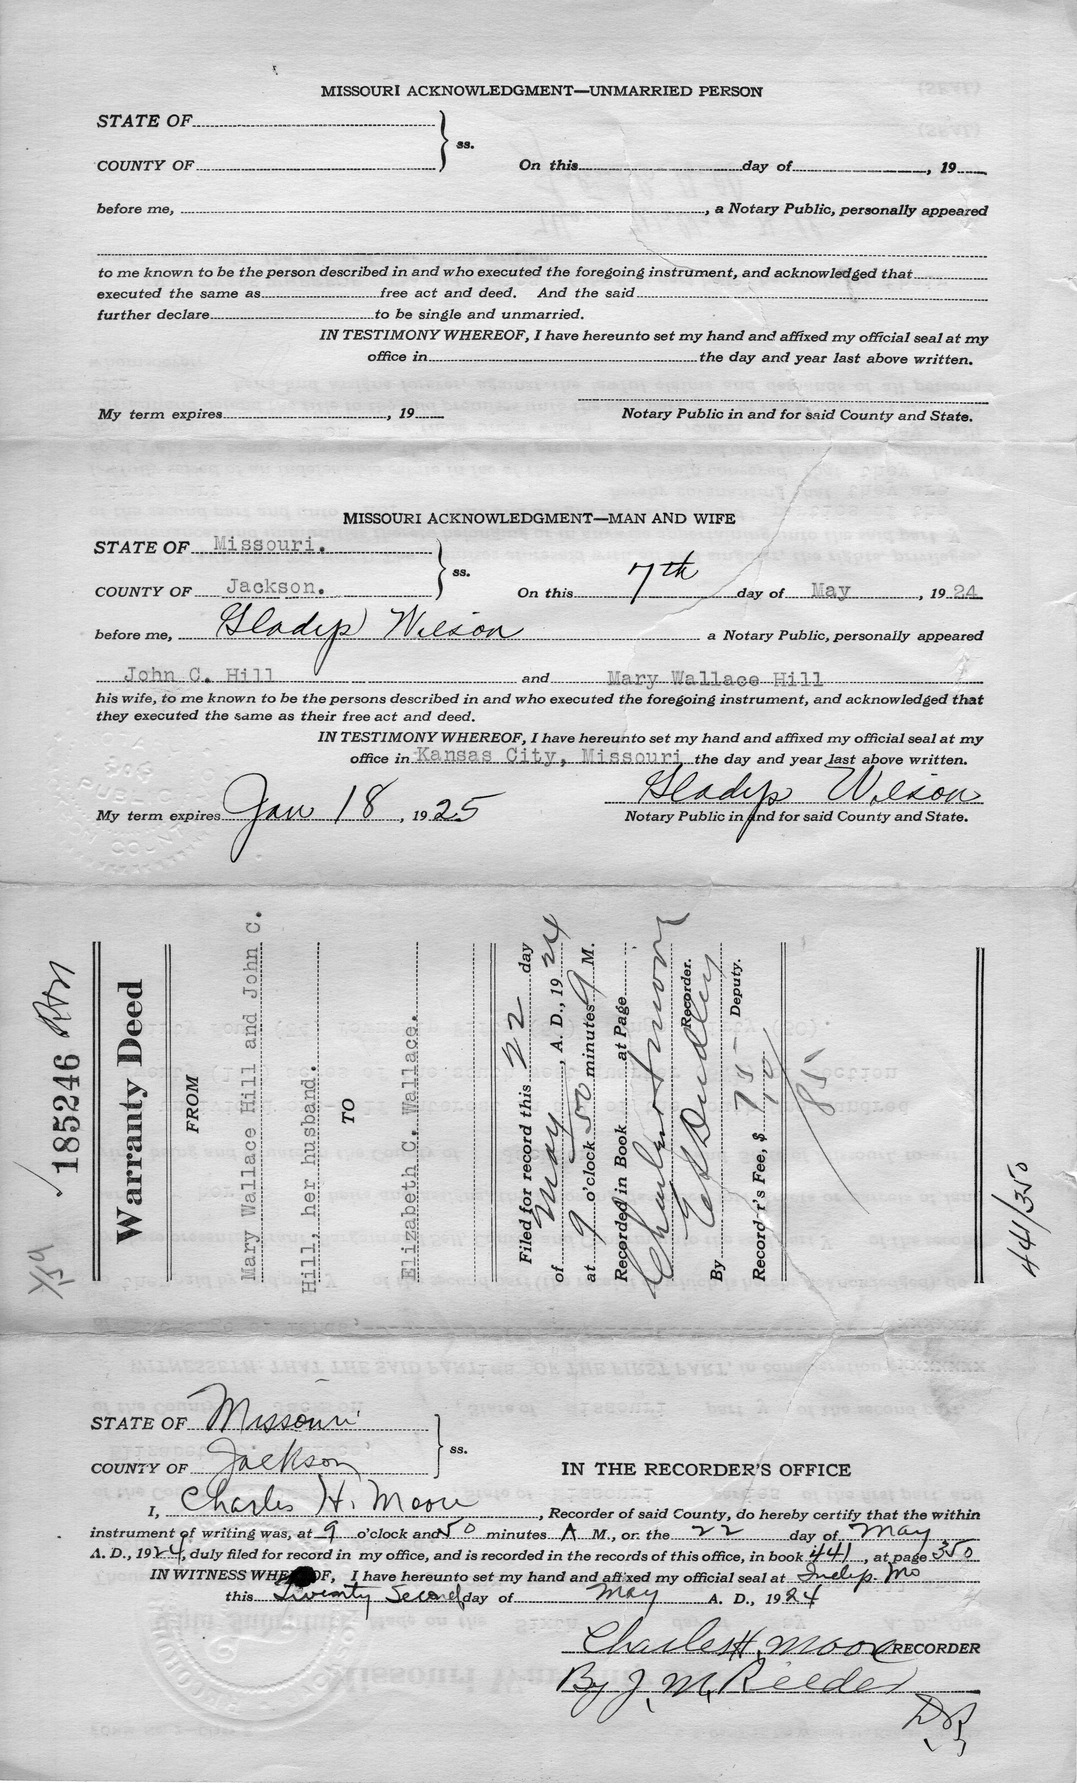 MISSOURI ACKNOWLEDGMENT—UNMARRIED PERSON
STATE OF
ss.
COUNTY OF On this day of , 19
before me, , a Notary Public, personally appeared
to me known to be the person described in and who executed the foregoing instrument, and acknowledged that
executed the same as free act and deed. And the said
further declare to be single and unmarried.
IN TESTIMONY WHEREOF, I have hereunto set my hand and affixed my official seal at my
office in the day and year last above written.
My term expires , 19 Notary Public in and for said County and State.
MISSOURI ACKNOWLEDGMENT—MAN AND WIFE
STATE OF Missouri.
ss.
COUNTY OF Jackson. On this 7th day of May , 19 24
before me, Gladys Wilson a Notary Public, personally appeared
John C. Hill and Mary Wallace Hill
his wife, to me known to be the persons described in and who executed the foregoing instrument, and acknowledged that
they executed the same as their free act and deed.
IN TESTIMONY WHEREOF, I have hereunto set my hand and affixed my official seal at my
office in Kansas City, Missouri the day and year last above written.
Gladys Wilson
My term expires Jan 18 , 19 25 Notary Public in and for said County and State.
185246
Warranty Deed
FROM
Mary Wallace Hill and John C.
Hill, her husband.
TO
Elizabeth C. Wallace.
Filed for record this 22 day
of May , A. D., 19 24
at 9 o'clock 50 minutes M.
Recorded in Book at Page
Charles H Moore
Recorder.
By Dudley Deputy.
Recorder's Fee, $ 75
10
85
441/350
STATE OF Missouri
ss.
COUNTY OF Jackson
IN THE RECORDER'S OFFICE
I, Charles H. Moore , Recorder of said County, do hereby certify that the within
instrument of writing was, at 9 o'clock and 50 minutes A M., on the 22 day of May
A. D., 1924, duly filed for record in my office, and is recorded in the records of this office, in book 441 , at page 350
IN WITNESS WHEREOF, I have hereunto set my hand and affixed my official seal at Indep. Mo
this Twenty Second day of May A. D., 19 24
Charles H. Moore RECORDER
By J. M. Reeder
DR